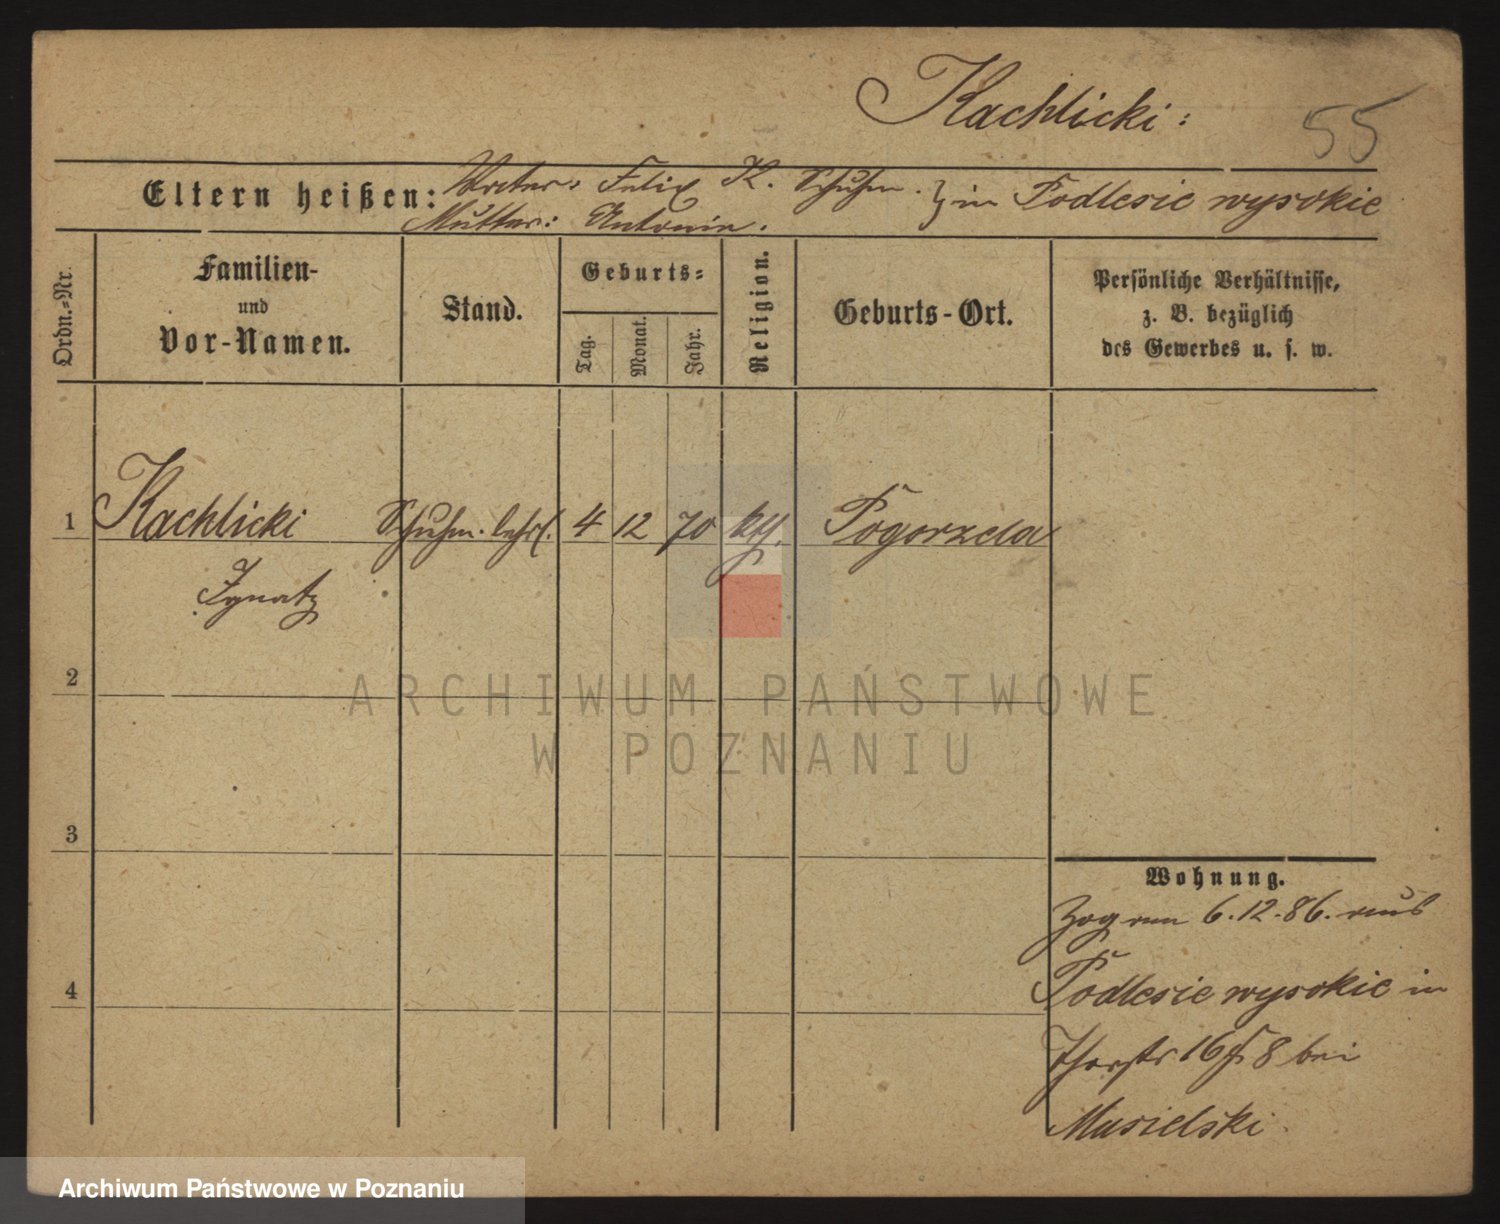 Kachlicki:
55
Eltern heißen: Vater: Felix K. Schuhm. } in Podlesie wysokie
Mutter: Antonin.
Ordn.-Nr.
Familien-
und
Vor-Namen.
Stand.
Geburts-
Tag.
Monat.
Jahr.
Religion.
Geburts-Ort.
Persönliche Verhältnisse,
z. B. bezüglich
des Gewerbes u. s. w.
1 Kachlicki Schuhm. lehrl. 4 12 70 kth. Pogorzela
Ignatz
2
3
4
Wohnung.
Zog am 6.12.86. aus
Podlesie wysokie in
Thorstr 16 8 bei
Musielski
ARCHIWUM PAŃSTWOWE
W POZNANIU
Archiwum Państwowe w Poznaniu